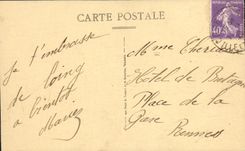 CARTE POSTALE
Je t'embrasse
de loin
à bientôt
Marie
Mme
Hôtel de Bretagne
Place de la
Gare
Rennes
40c